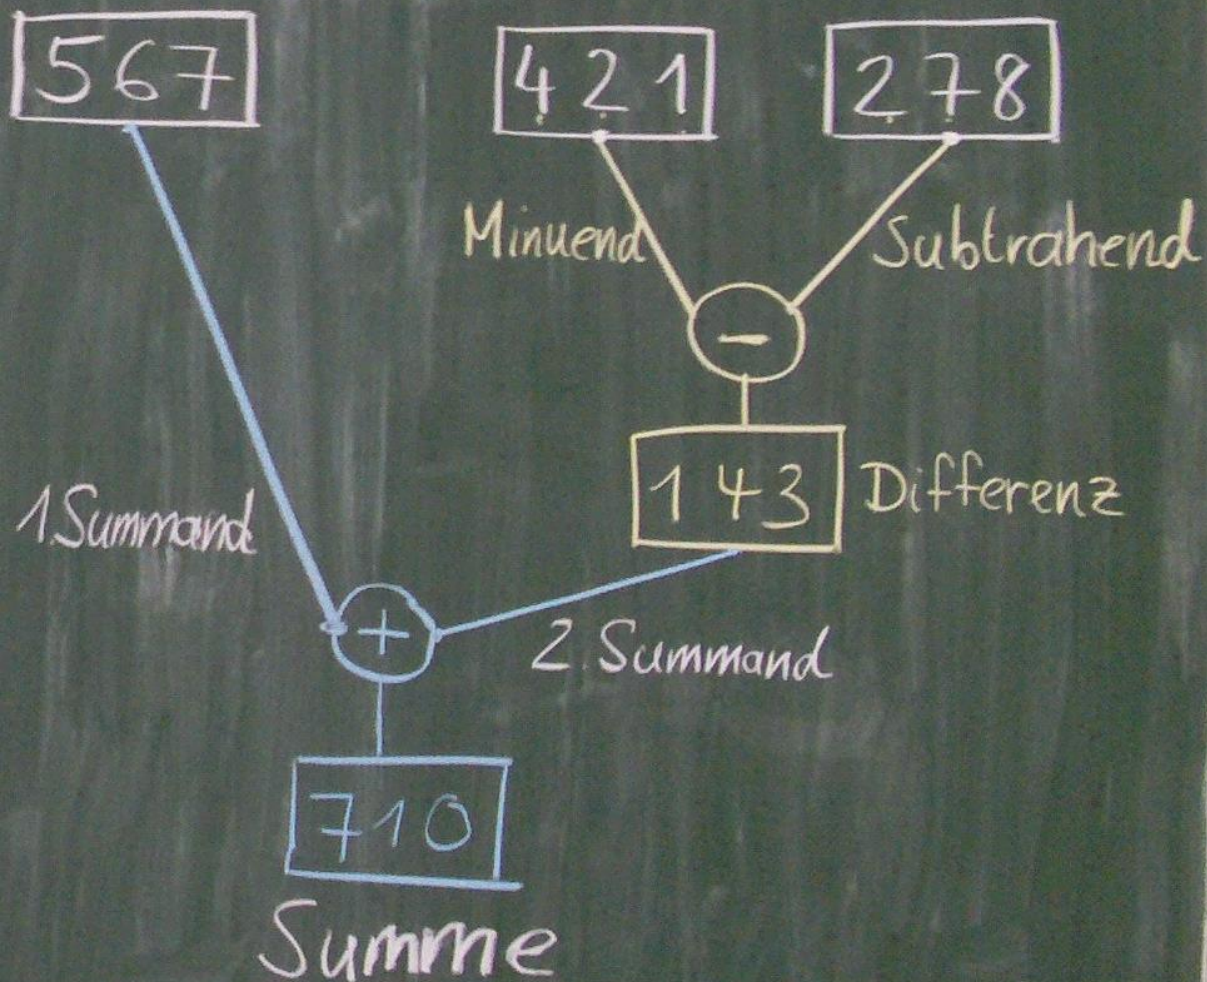 567 421 278
Minuend Subtrahend
-
143 Differenz
1.Summand
+ 2.Summand
710
Summe